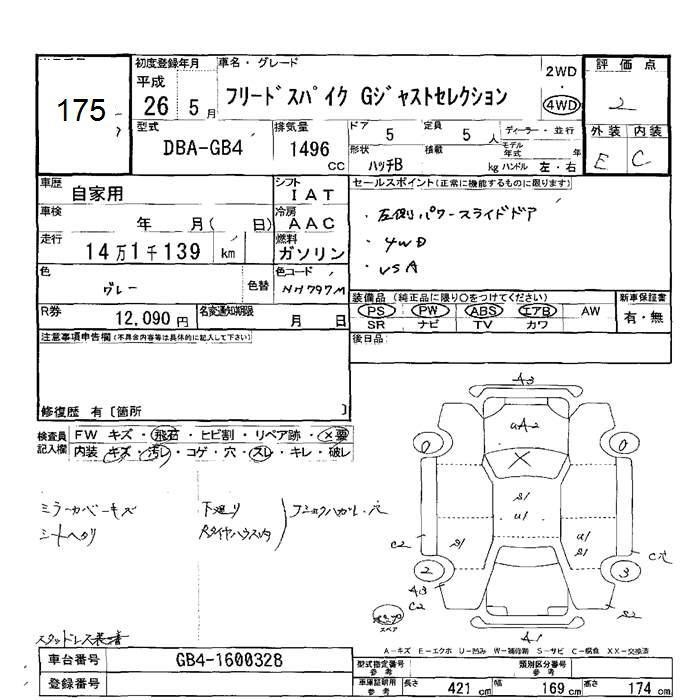 初度登録年月
車名・グレード
評価点
平成
26年5月
175
フリードスパイク Gジャストセレクション
2WD
4WD
2
型式
排気量
ドア 5
定員 5人
ディーラー・並行
外装 内装
DBA-GB4
1496 CC
形状 ハッチB
積載 kg
モデル年式 年
ハンドル 左・右
E C
車歴 自家用
シフト IAT
セールスポイント(正常に機能するものに限ります)
車検 年 月( 日)
冷房 AAC
・左側パワースライドドア
・4WD
・VSA
走行 14万1千139 km
燃料 ガソリン
色 グレー 色替
色コード NH797M
装備品(純正品に限り○をつけてください)
新車保証書
PS PW ABS エアB AW
有・無
SR ナビ TV カワ
R券 12,090円
名変通知期限 月 日
後日品
注意事項申告欄(不具合内容等は具体的に記入して下さい)
修復歴 有[箇所 ]
検査員記入欄
FW キズ・飛石・ヒビ割・リペア跡・×要
内装・キズ・汚レ・コゲ・穴・スレ・キレ・破レ
ミラーカバーキズ
下廻り
シートヘタリ
A3
uA2
0
0
S/
U/
C2
S/
U/
S/
2
3
A3
C2
S2
A1
スペア
スタッドレス装着
A-キズ E-エクボ U-凹み W-補修跡 S-サビ C-腐食 XX-交換済
車台番号 GB4-1600328
型式指定番号 参考
類別区分番号 参考
登録番号
車庫証明用 参考
長さ 421 cm
幅 169 cm
高さ 174 cm